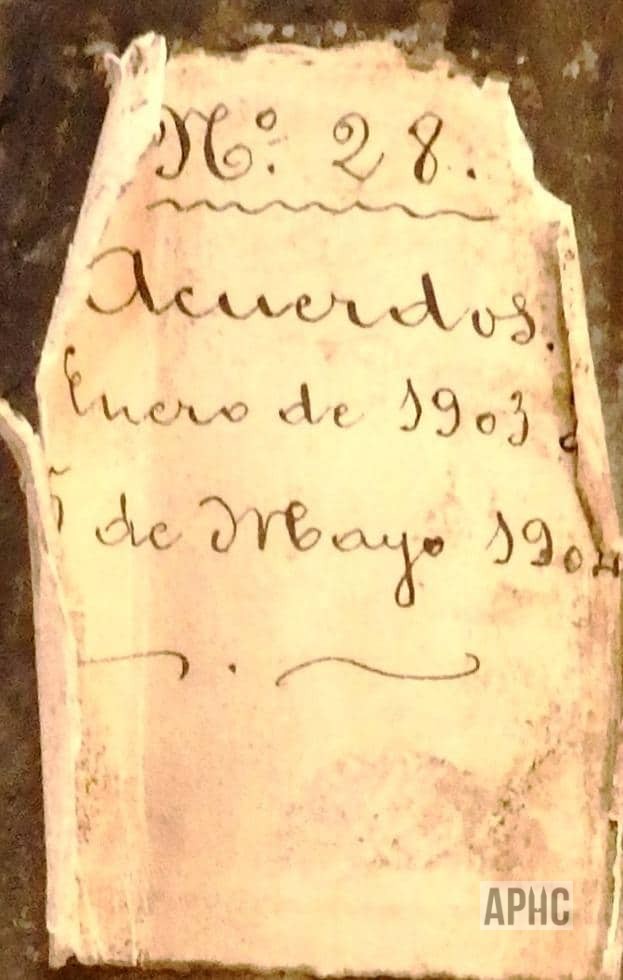 Nº. 28.
Acuerdos.
Enero de 1903 a
5 de Mayo 1904
APHC